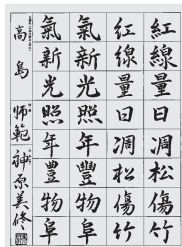 紅線量日凋松傷竹
紅線量日凋松傷竹
氣新光照年豐物阜
氣新光照年豐物阜
高島
師範
神原美修